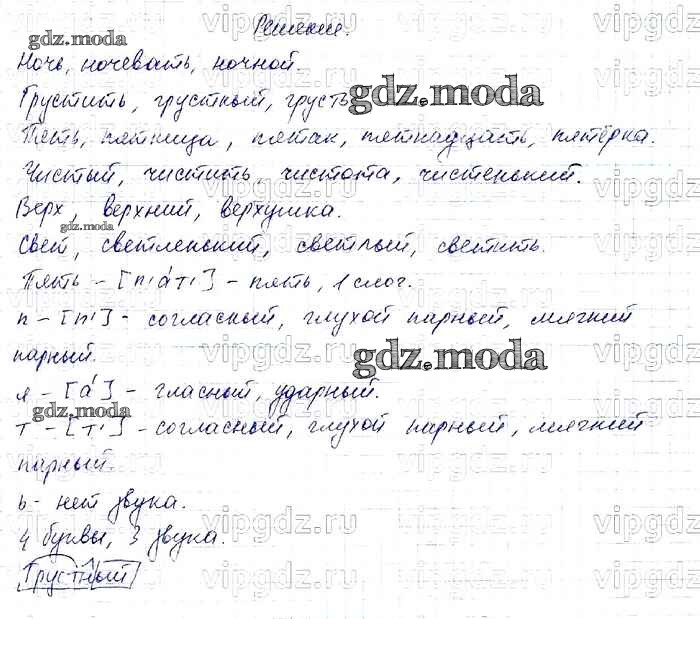 Решение.
Ночь, ночевать, ночной.
Грустить, грустный, грусть
Пять, пятница, пятак, пятнадцать, пятёрка.
Чистый, чистить, чистота, чистенький.
Верх, верхний, верхушка.
Свет, светленький, светлый, светить.
Пять – [п'а́т'] – пять, 1 слог.
п – [п'] – согласный, глухой парный, мягкий
парный.
я – [а́] – гласный, ударный.
т – [т'] – согласный, глухой парный, мягкий
парный.
ь – нет звука.
4 буквы, 3 звука.
Грустный
gdz.moda
gdz.moda
gdz.moda
gdz.moda
gdz.moda
vipgdz.ru